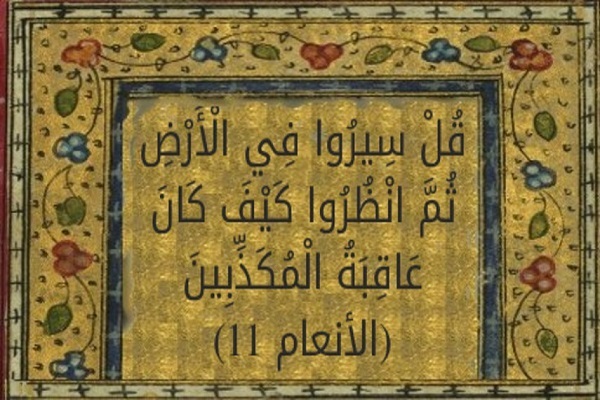 قُلْ سِيرُوا فِي الْأَرْضِ
ثُمَّ انْظُرُوا كَيْفَ كَانَ
عَاقِبَةُ الْمُكَذِّبِينَ
(الأنعام 11)